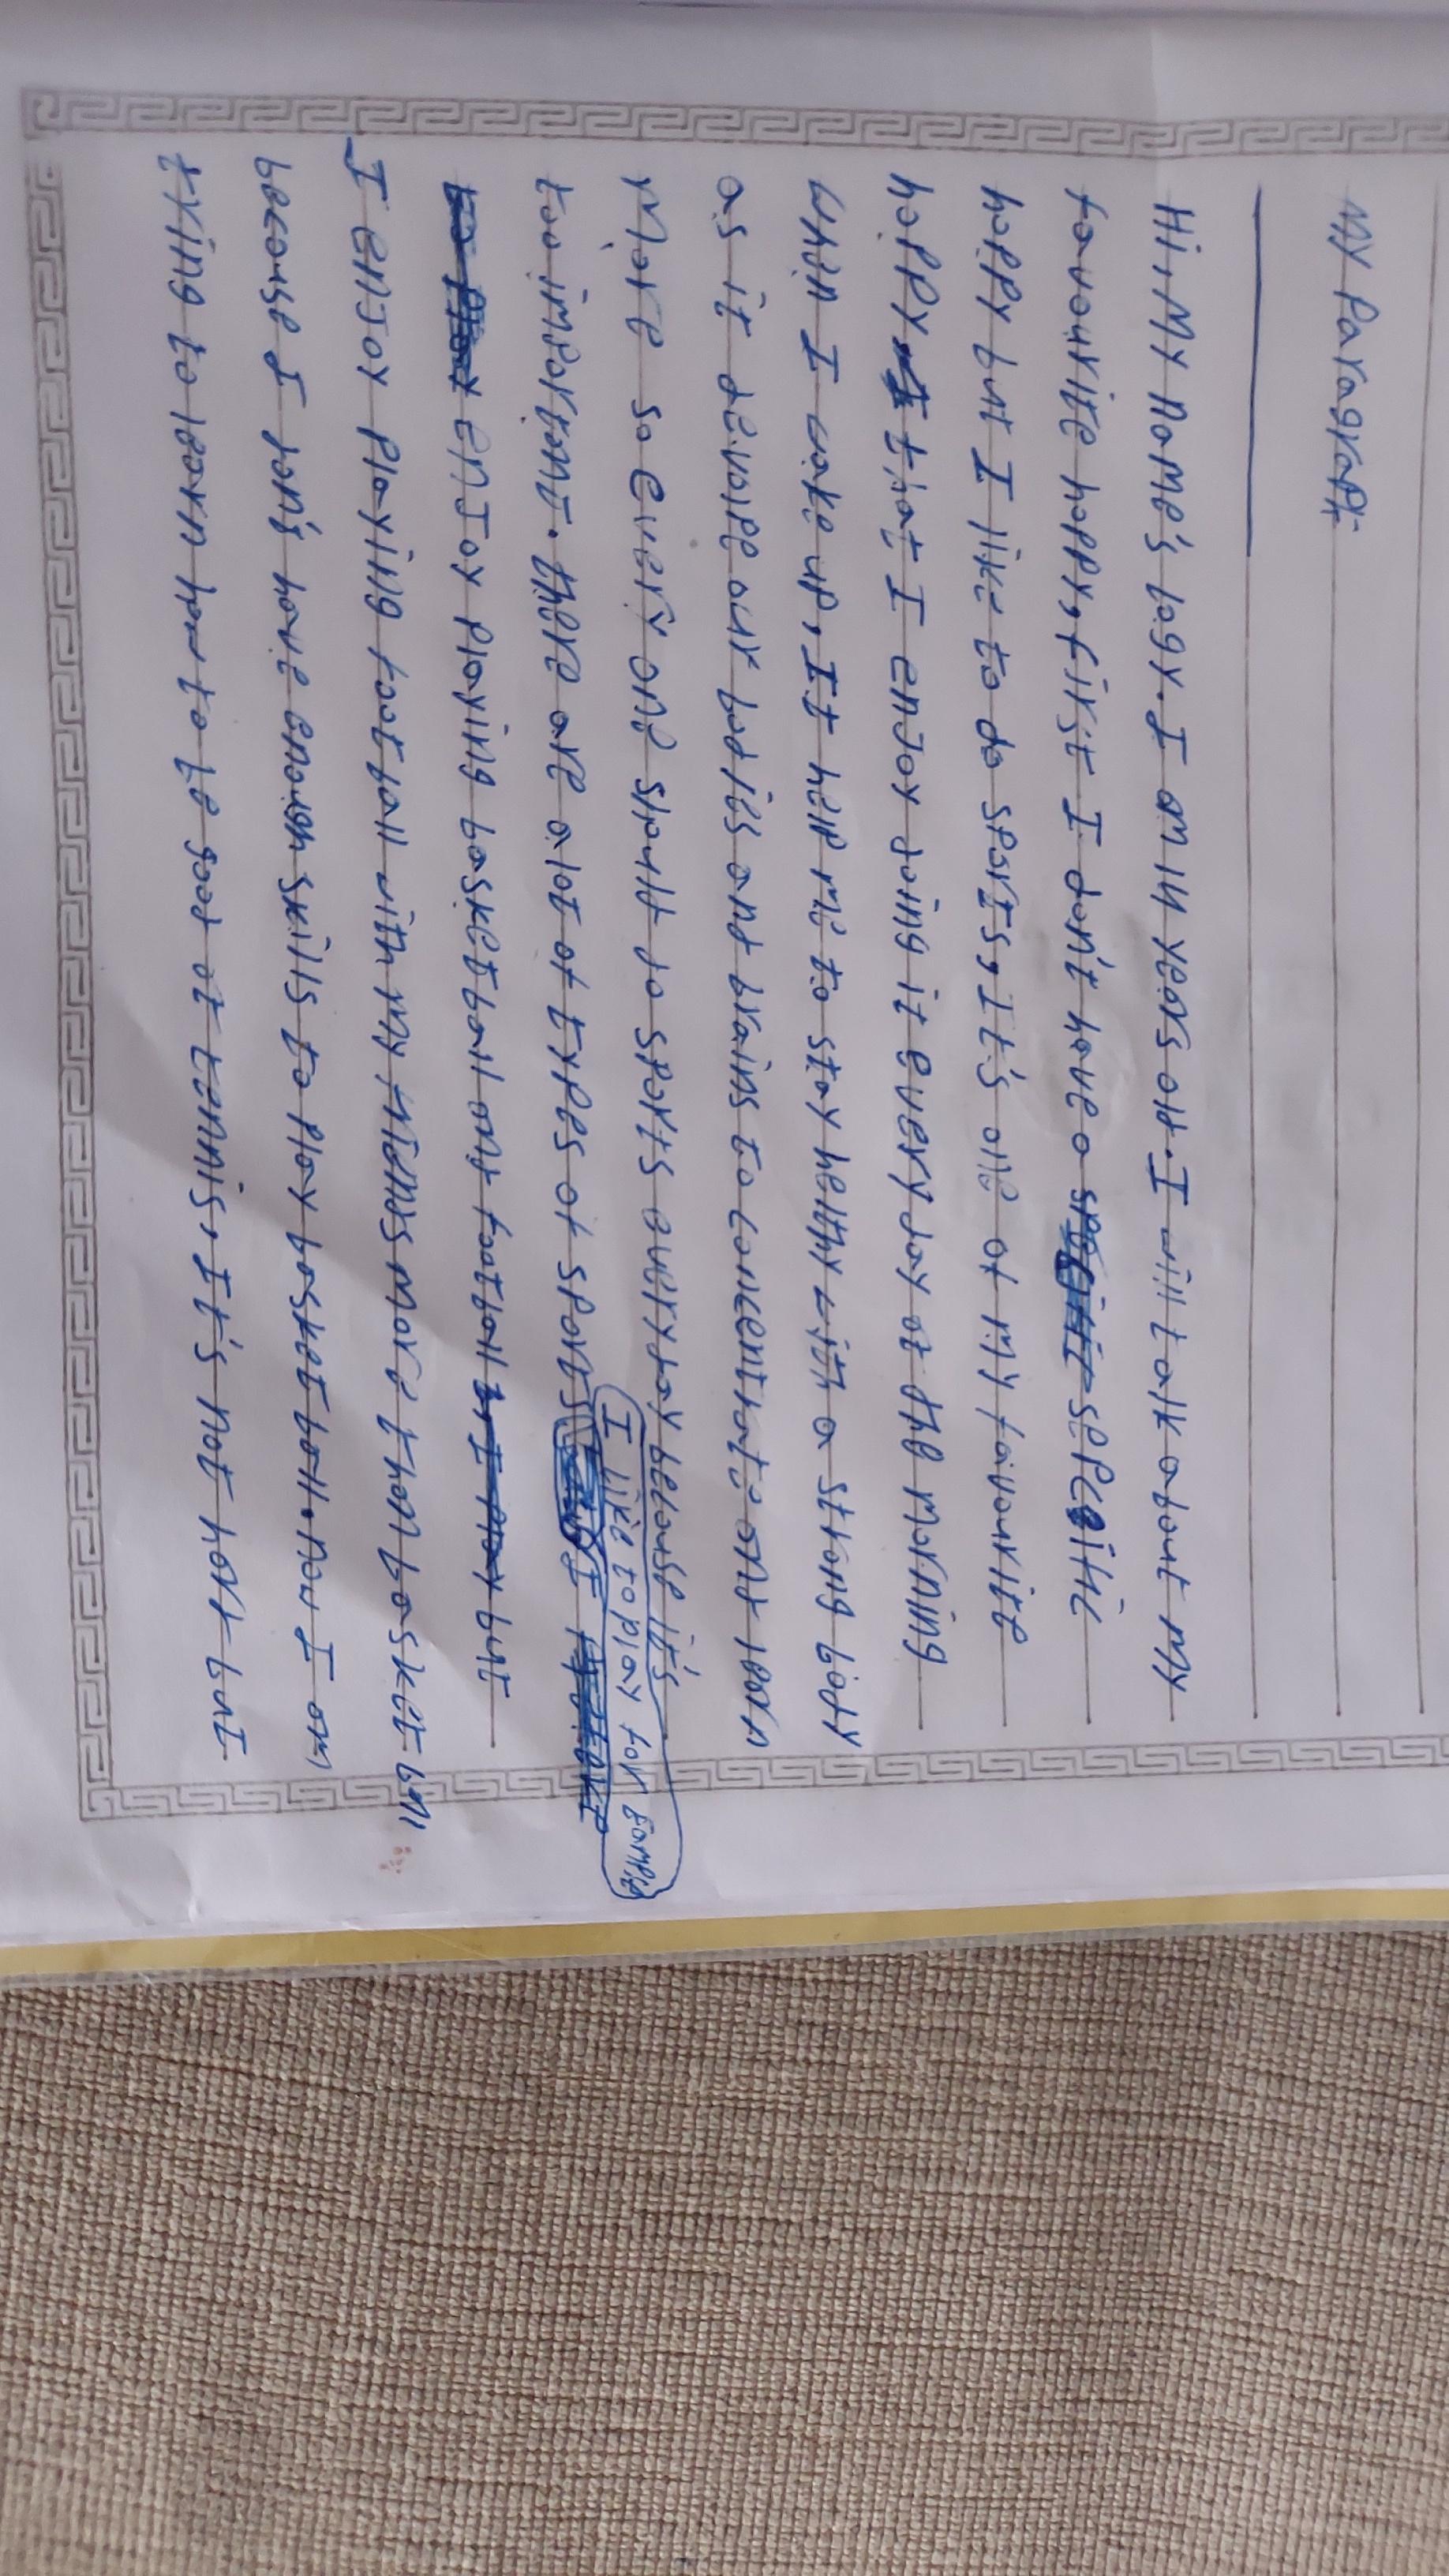 My Paragraph
Hi, My name's logy. I am 14 years old. I will talk about my
favourite hoppy, first I don't have a sepcific
hoppy but I like to do sports, It's one of my favourite
hoppy that I enjoy doing it every day at the morning
when I wake up, It help me to stay helthy with a strong body
as it devolpe our bodies and brains to concentrate and learn
more so every one should do sports everyday because it's
too important. there are alot of types of sports I like to play for example
I enjoy playing basketball and football but
I enjoy playing football with my friends more than basketball
because I don't have enough skills to play basketball. now I am
trying to learn how to be good at tennis, It's not hard but